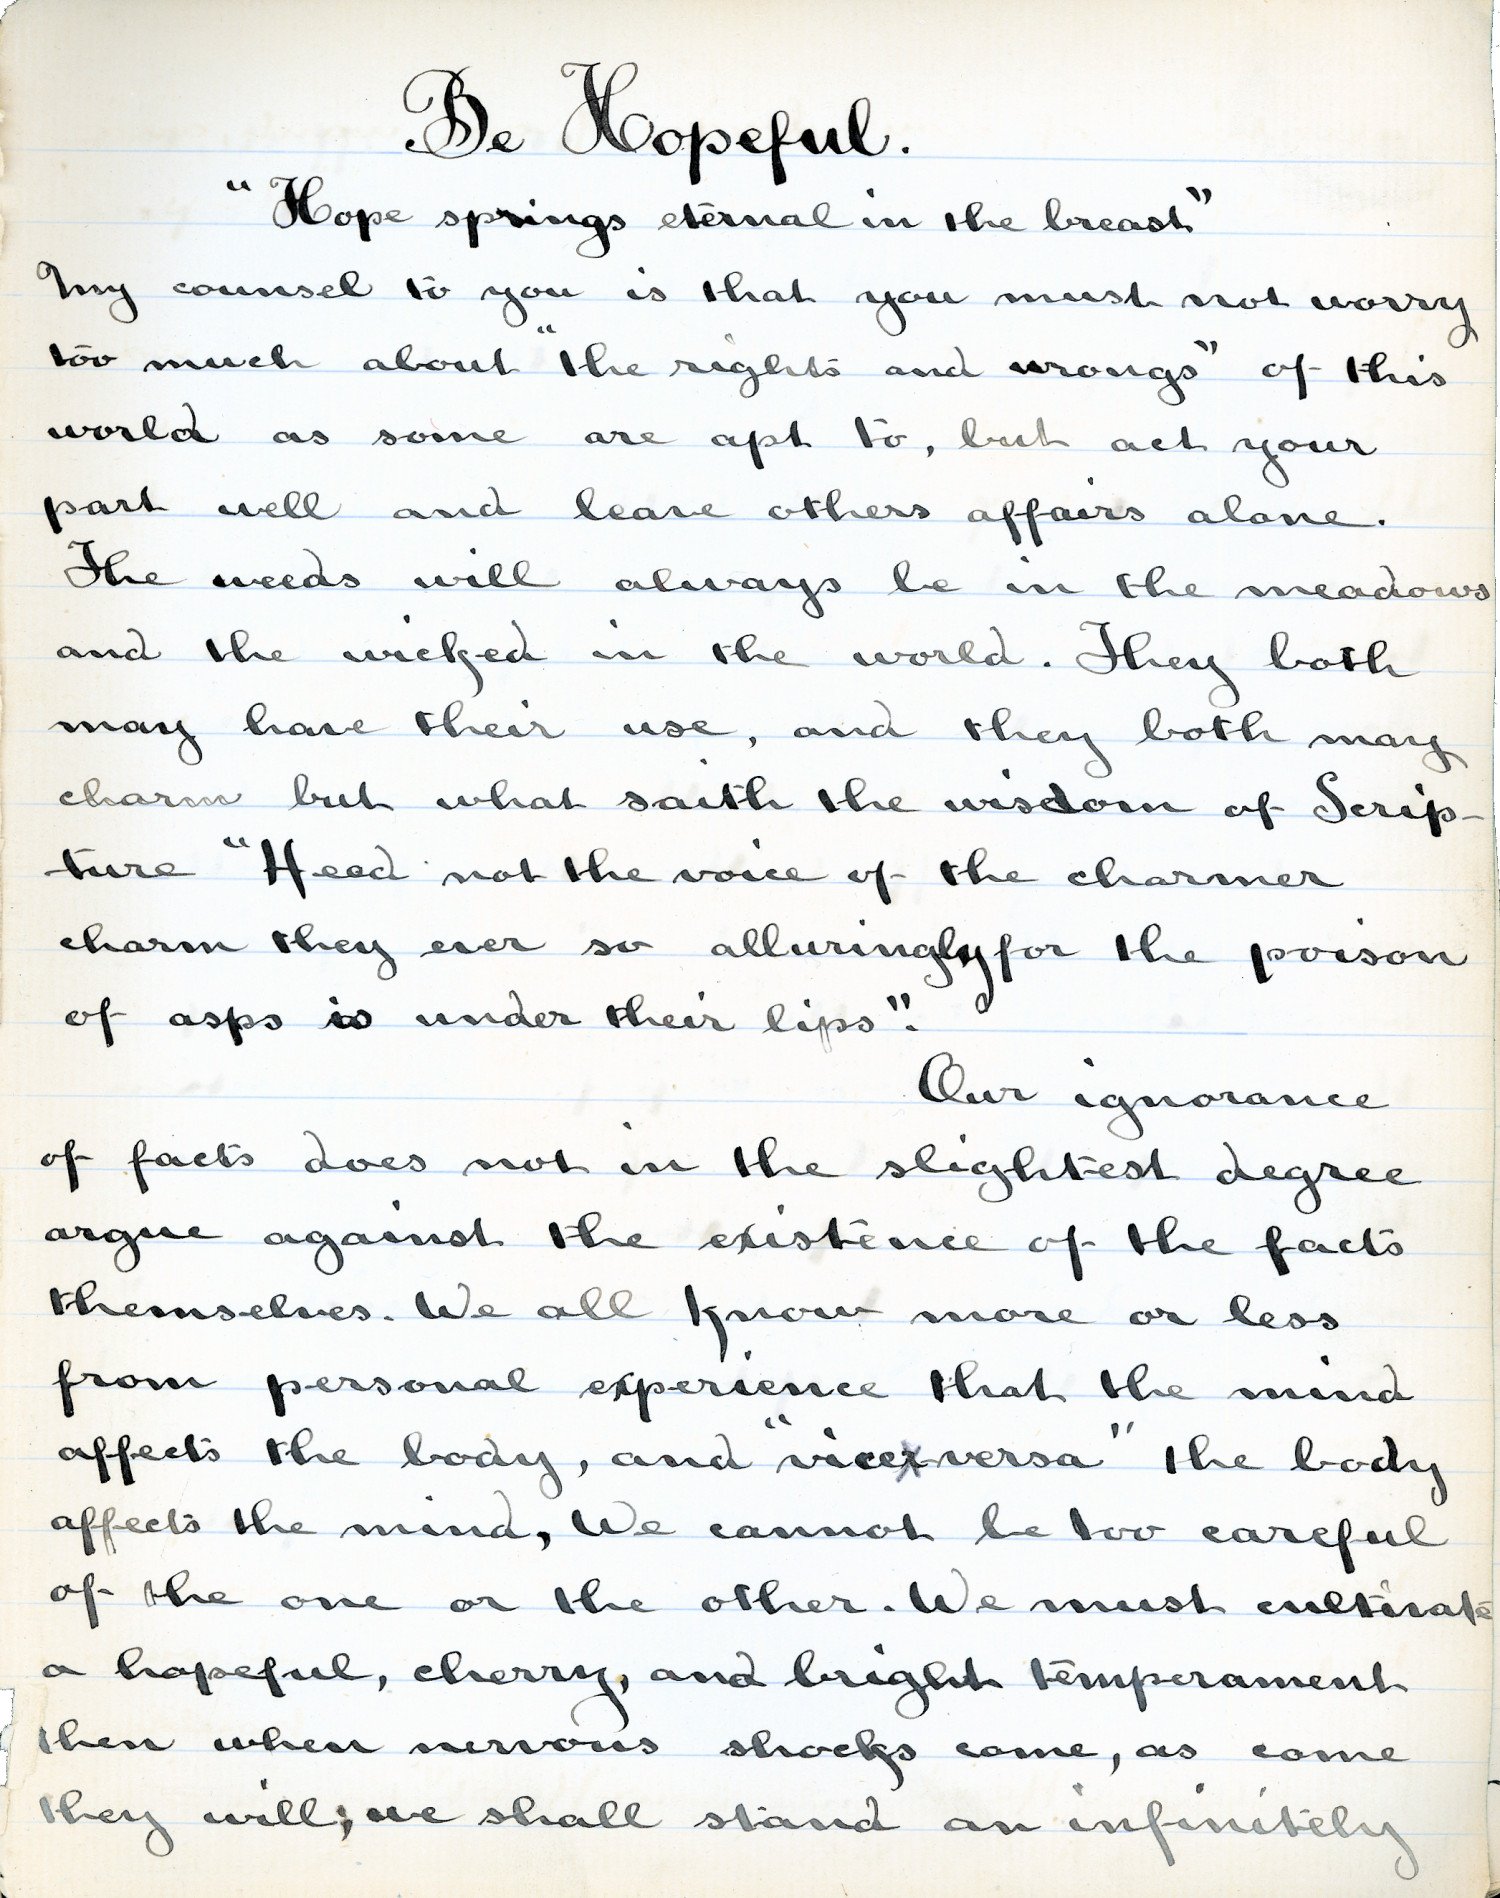 Be Hopeful.
"Hope springs eternal in the breast"
My counsel to you is that you must not worry
too much about "the rights and wrongs" of this
world as some are apt to, but act your
part well and leave others affairs alone.
The weeds will always be in the meadows
and the wicked in the world. They both
may have their use, and they both may
charm but what saith the wisdom of Scrip-
ture "Heed not the voice of the charmer
charm they ever so alluringly for the poison
of asps is under their lips".
Our ignorance
of facts does not in the slightest degree
argue against the existence of the facts
themselves. We all know more or less
from personal experience that the mind
affects the body, and "vice versa" the body
affects the mind, We cannot be too careful
of the one or the other. We must cultivate
a hopeful, cherry, and bright temperament
then when nervous shocks come, as come
they will; we shall stand an infinitely